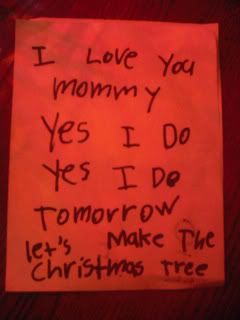 I Love You
mommy
Yes I Do
Yes I Do
Tomorrow
let's Make The
Christmas Tree